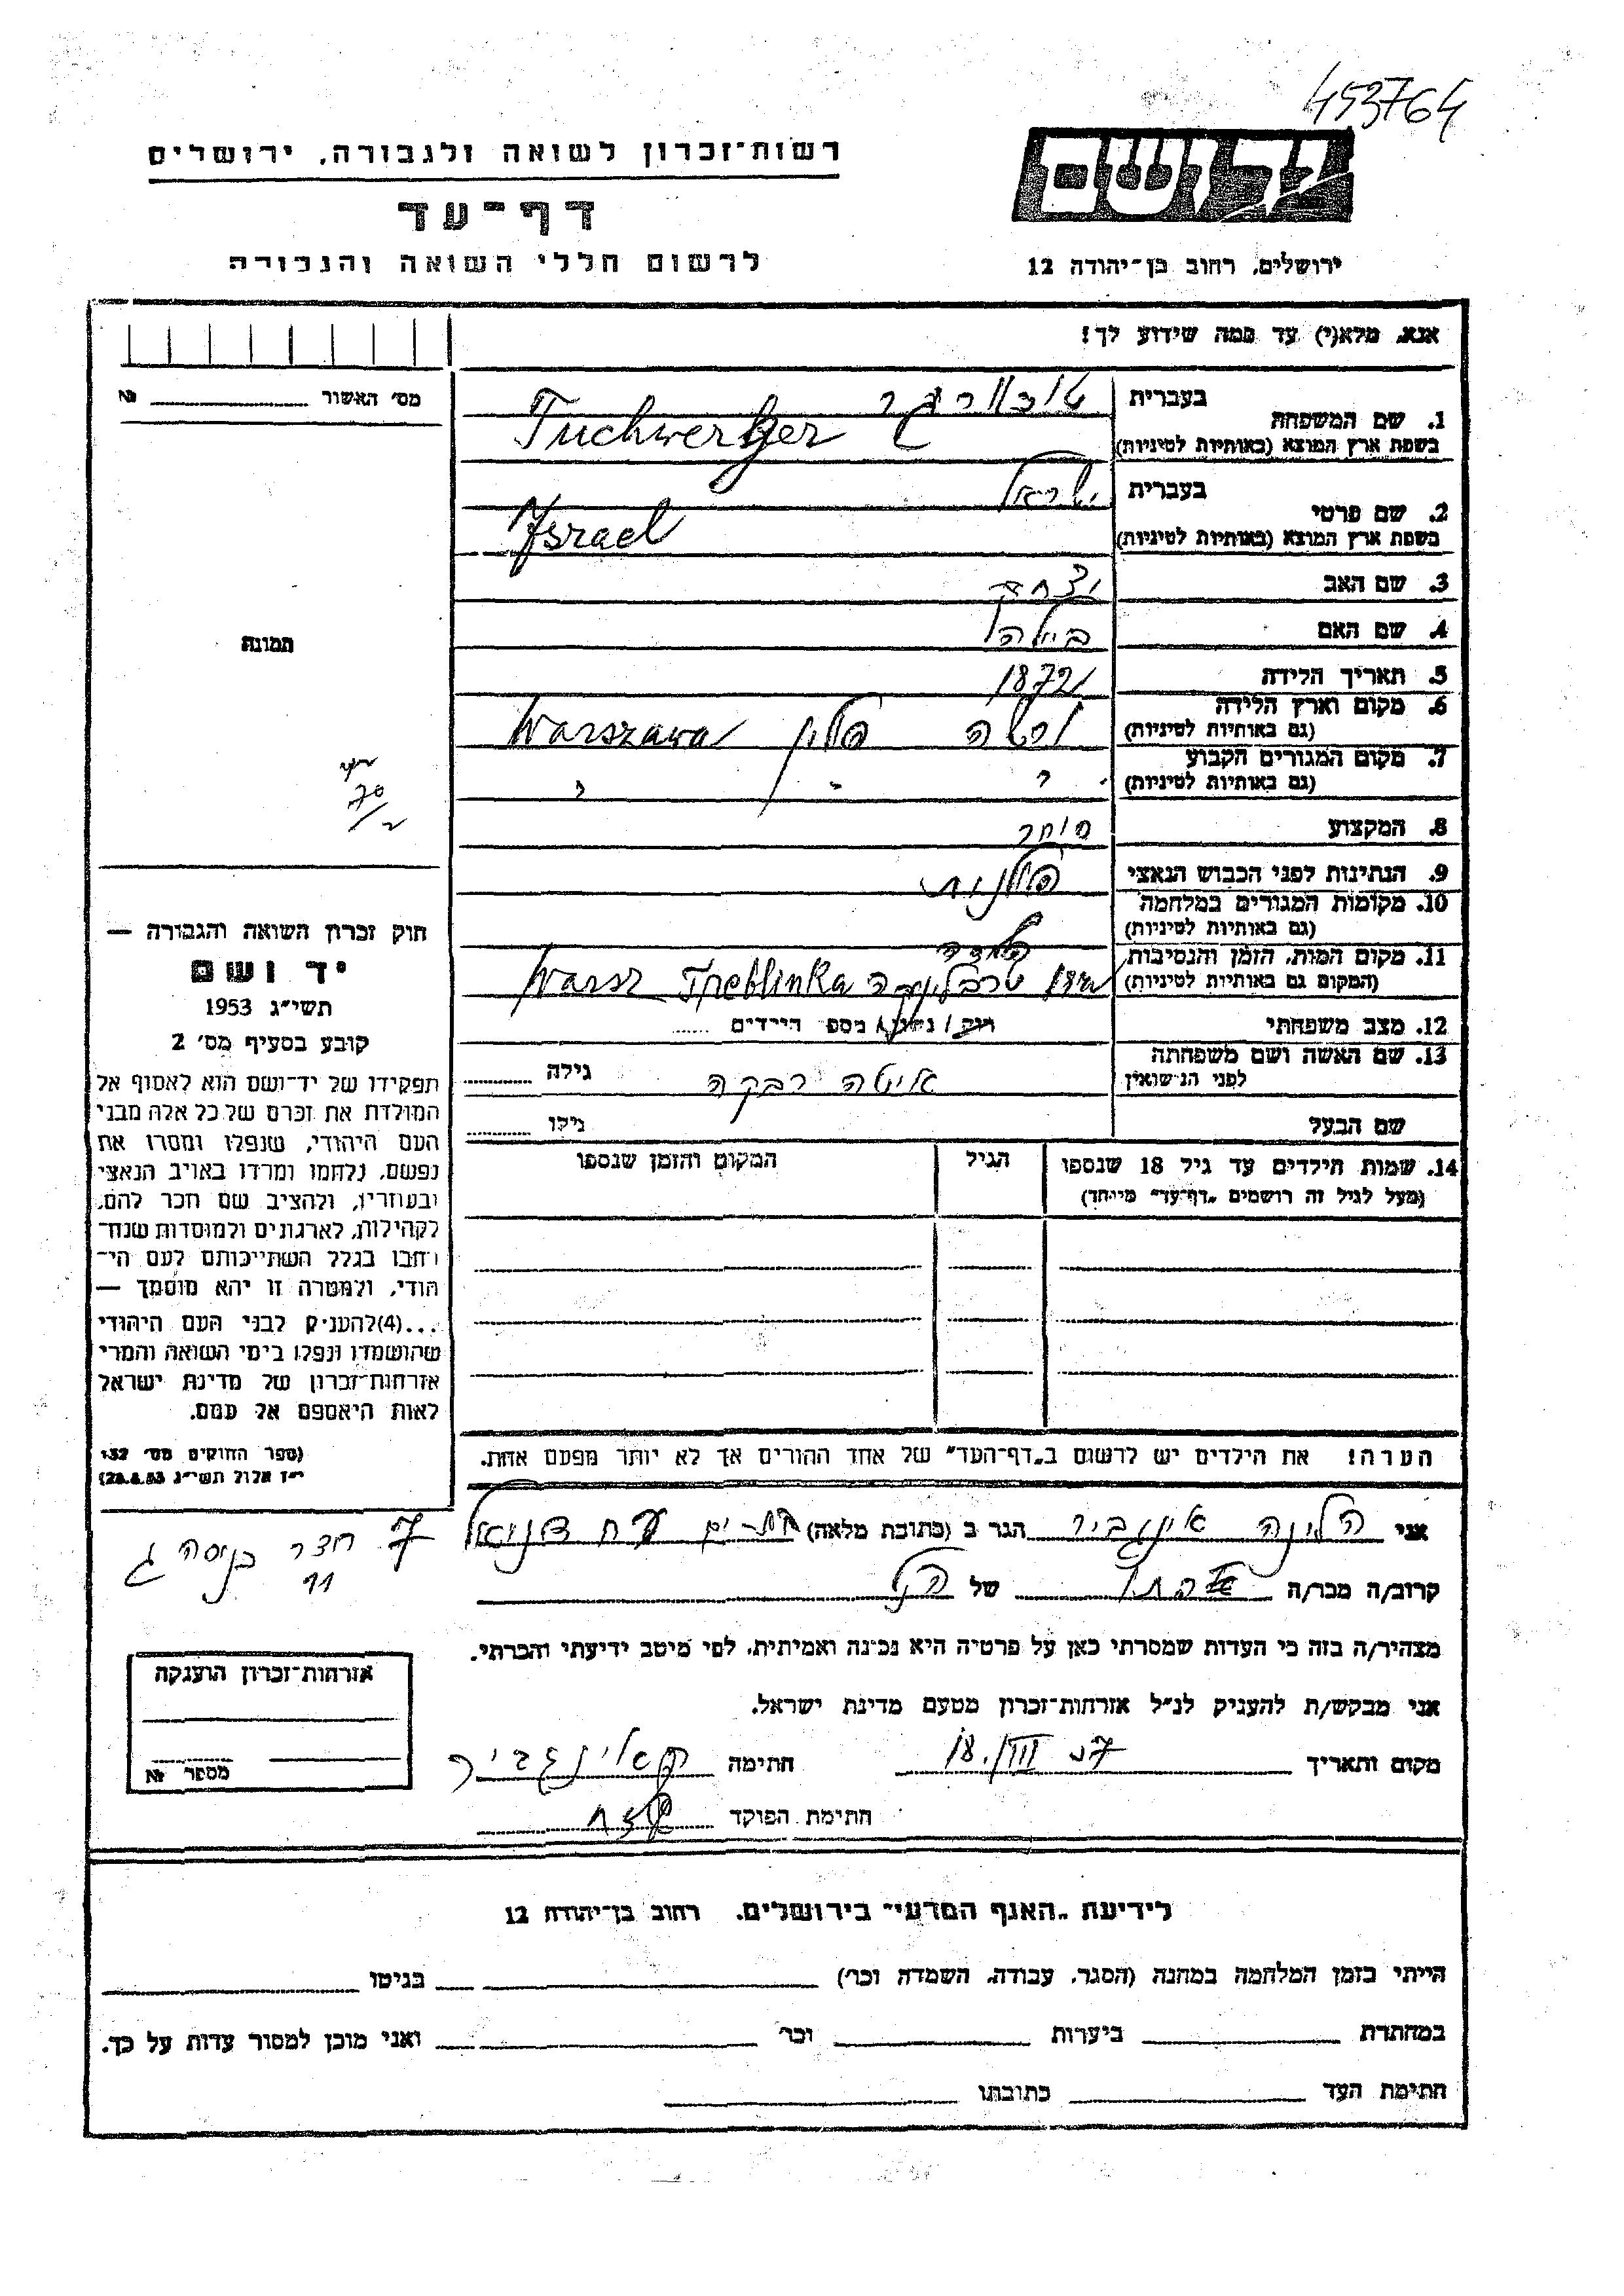 453764
יד ושם
רשות־זכרון לשואה ולגבורה, ירושלים
דף־עד
לרשום חללי השואה והגבורה
ירושלים, רחוב בן־יהודה 12
אנא, מלא(י) עד כמה שידוע לך!
מס׳ האשור № 
1. שם המשפחה בעברית טוכוורגר
בשפת ארץ המוצא (באותיות לטיניות) Tuchwerger
2. שם פרטי בעברית ישראל
בשפת ארץ המוצא (באותיות לטיניות) Israel
3. שם האב יצחק
4. שם האם ביילה
5. תאריך הלידה 1872
6. מקום וארץ הלידה (גם באותיות לטיניות) ורשה פולין Warszawa
7. מקום המגורים הקבוע (גם באותיות לטיניות) " - "
8. המקצוע סוחר
9. הנתינות לפני הכבוש הנאצי פולנית
10. מקומות המגורים במלחמה (גם באותיות לטיניות)
11. מקום המות, הזמן והנסיבות (המקום גם באותיות לטיניות) טרבלינקה Treblinka Warsz
12. מצב משפחתי רוק / נשוי / מספ׳ הילדים
13. שם האשה ושם משפחתה לפני הנישואין איטה רבקה גילה
שם הבעל גילו
14. שמות הילדים עד גיל 18 שנספו הגיל המקום והזמן שנספו
(מעל לגיל זה רושמים „דף־עד״ מיוחד)
הערה! את הילדים יש לרשום ב„דף־העד״ של אחד ההורים אך לא יותר מפעם אחת.
תמונה
חוק זכרון השואה והגבורה —
יד ושם
תשי״ג 1953
קובע בסעיף מס׳ 2
תפקידו של יד־ושם הוא לאסוף אל
המולדת את זכרם של כל אלה מבני
העם היהודי, שנפלו ומסרו את
נפשם, נלחמו ומרדו באויב הנאצי
ובעוזריו, ולהציב שם וזכר להם,
לקהילות, לארגונים ולמוסדות שנח־
רבו בגלל השתייכותם לעם הי־
הודי, ולמטרה זו יהא מוסמך —
...(4) להעניק לבני העם היהודי
שהושמדו ונפלו בימי השואה והמרי
אזרחות־זכרון של מדינת ישראל
לאות היאספם אל עמם.
(ספר החוקים מס׳ 132
י״ז אלול תשי״ג 28.8.53)
אני הלינה הגר ב (כתובת מלאה) בת־ים דניאל 7 חצר כניסה ג
11
קרוב/ה מכר/ה של הנ״ל
מצהיר/ה בזה כי העדות שמסרתי כאן על פרטיה היא נכונה ואמיתית, לפי מיטב ידיעתי והכרתי.
אני מבקש/ת להעניק לנ״ל אזרחות־זכרון מטעם מדינת ישראל.
מקום ותאריך 18.III חתימה
חתימת הפוקד
אזרחות־זכרון הוענקה
מספר №
לידיעת „האגף המדעי״ בירושלים, רחוב בן־יהודה 12
הייתי בזמן המלחמה במחנה (הסגר, עבודה, השמדה וכו׳) בגיטו
במחתרת ביערות וכו׳ ואני מוכן למסור עדות על כך.
חתימת העד כתובתו